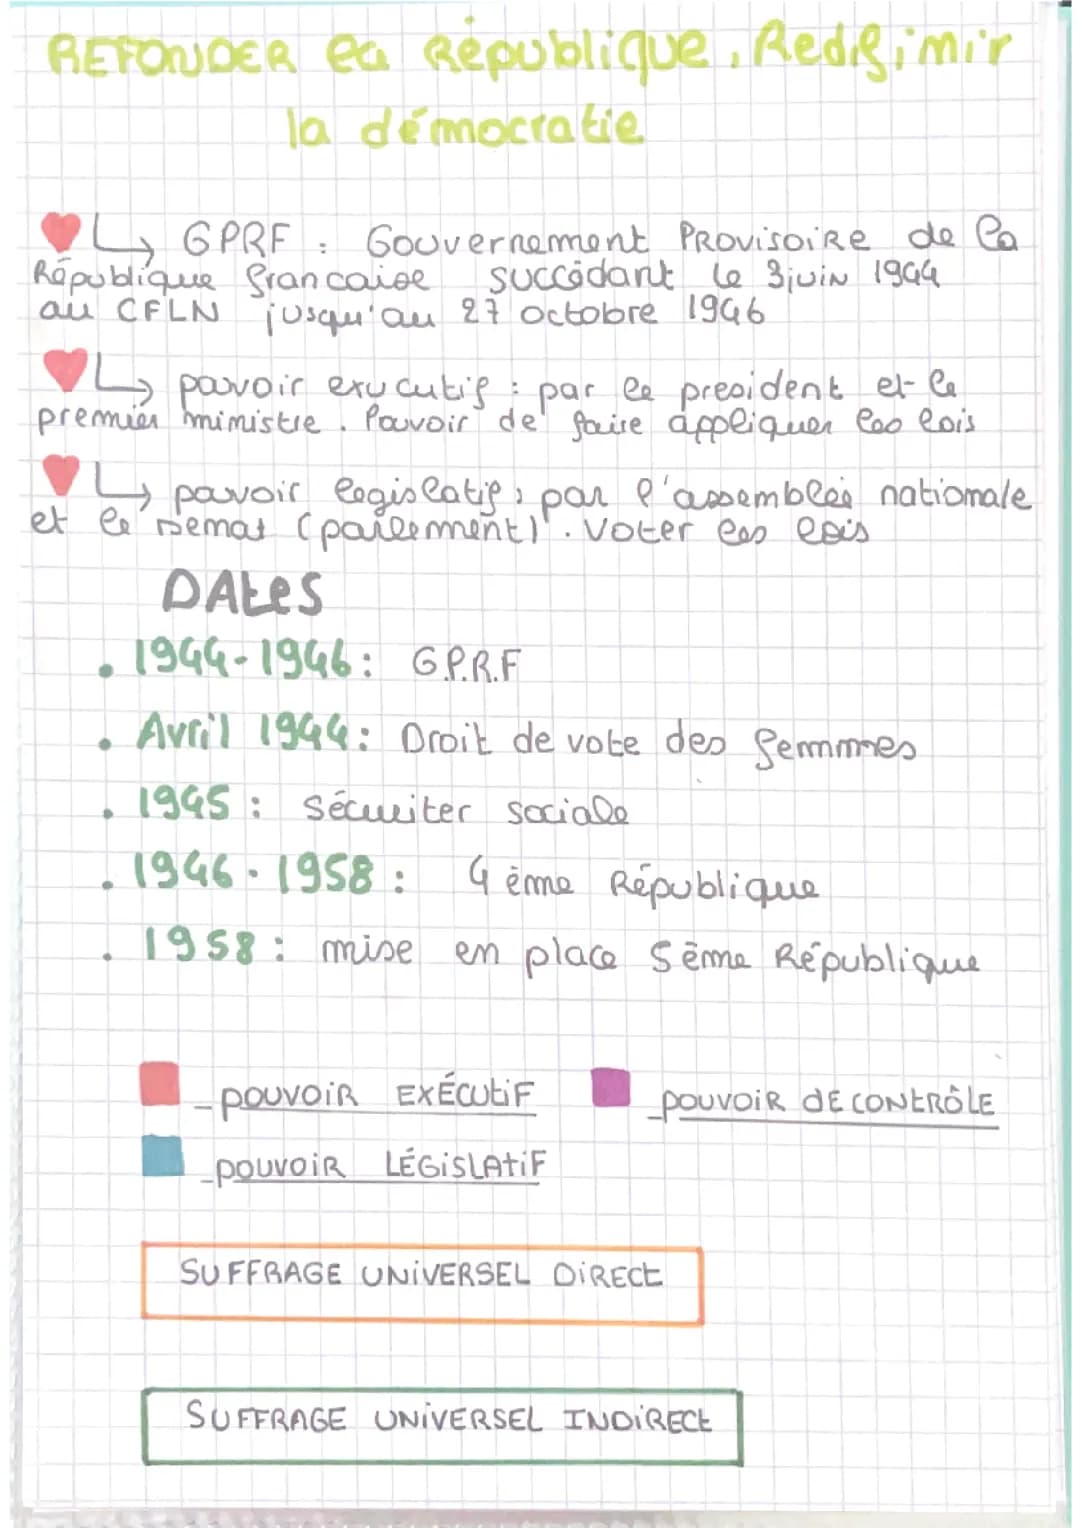 REFONDER la République, Redéfinir
la démocratie
GPRF : Gouvernement PROVISOIRE de la
République francaise succédant le 3 juin 1944
au CFLN jusqu'au 27 octobre 1946
pavoir exucutif : par le president et le
premier ministre. Pouvoir de faire appliquer les lois
pavoir legislatif : par l'assemblée nationale
et le senat (parlement). Voter les lois
DATES
. 1944-1946 : G.P.R.F
. Avril 1944 : Droit de vote des femmes
. 1945 : Sécuriter sociale
. 1946-1958 : 4 ème République
. 1958 : mise en place 5ème République
_pouvoir EXÉCUTIF
_pouvoir DE CONTRÔLE
_pouvoir LÉGISLATIF
SUFFRAGE UNIVERSEL DIRECT
SUFFRAGE UNIVERSEL INDIRECT